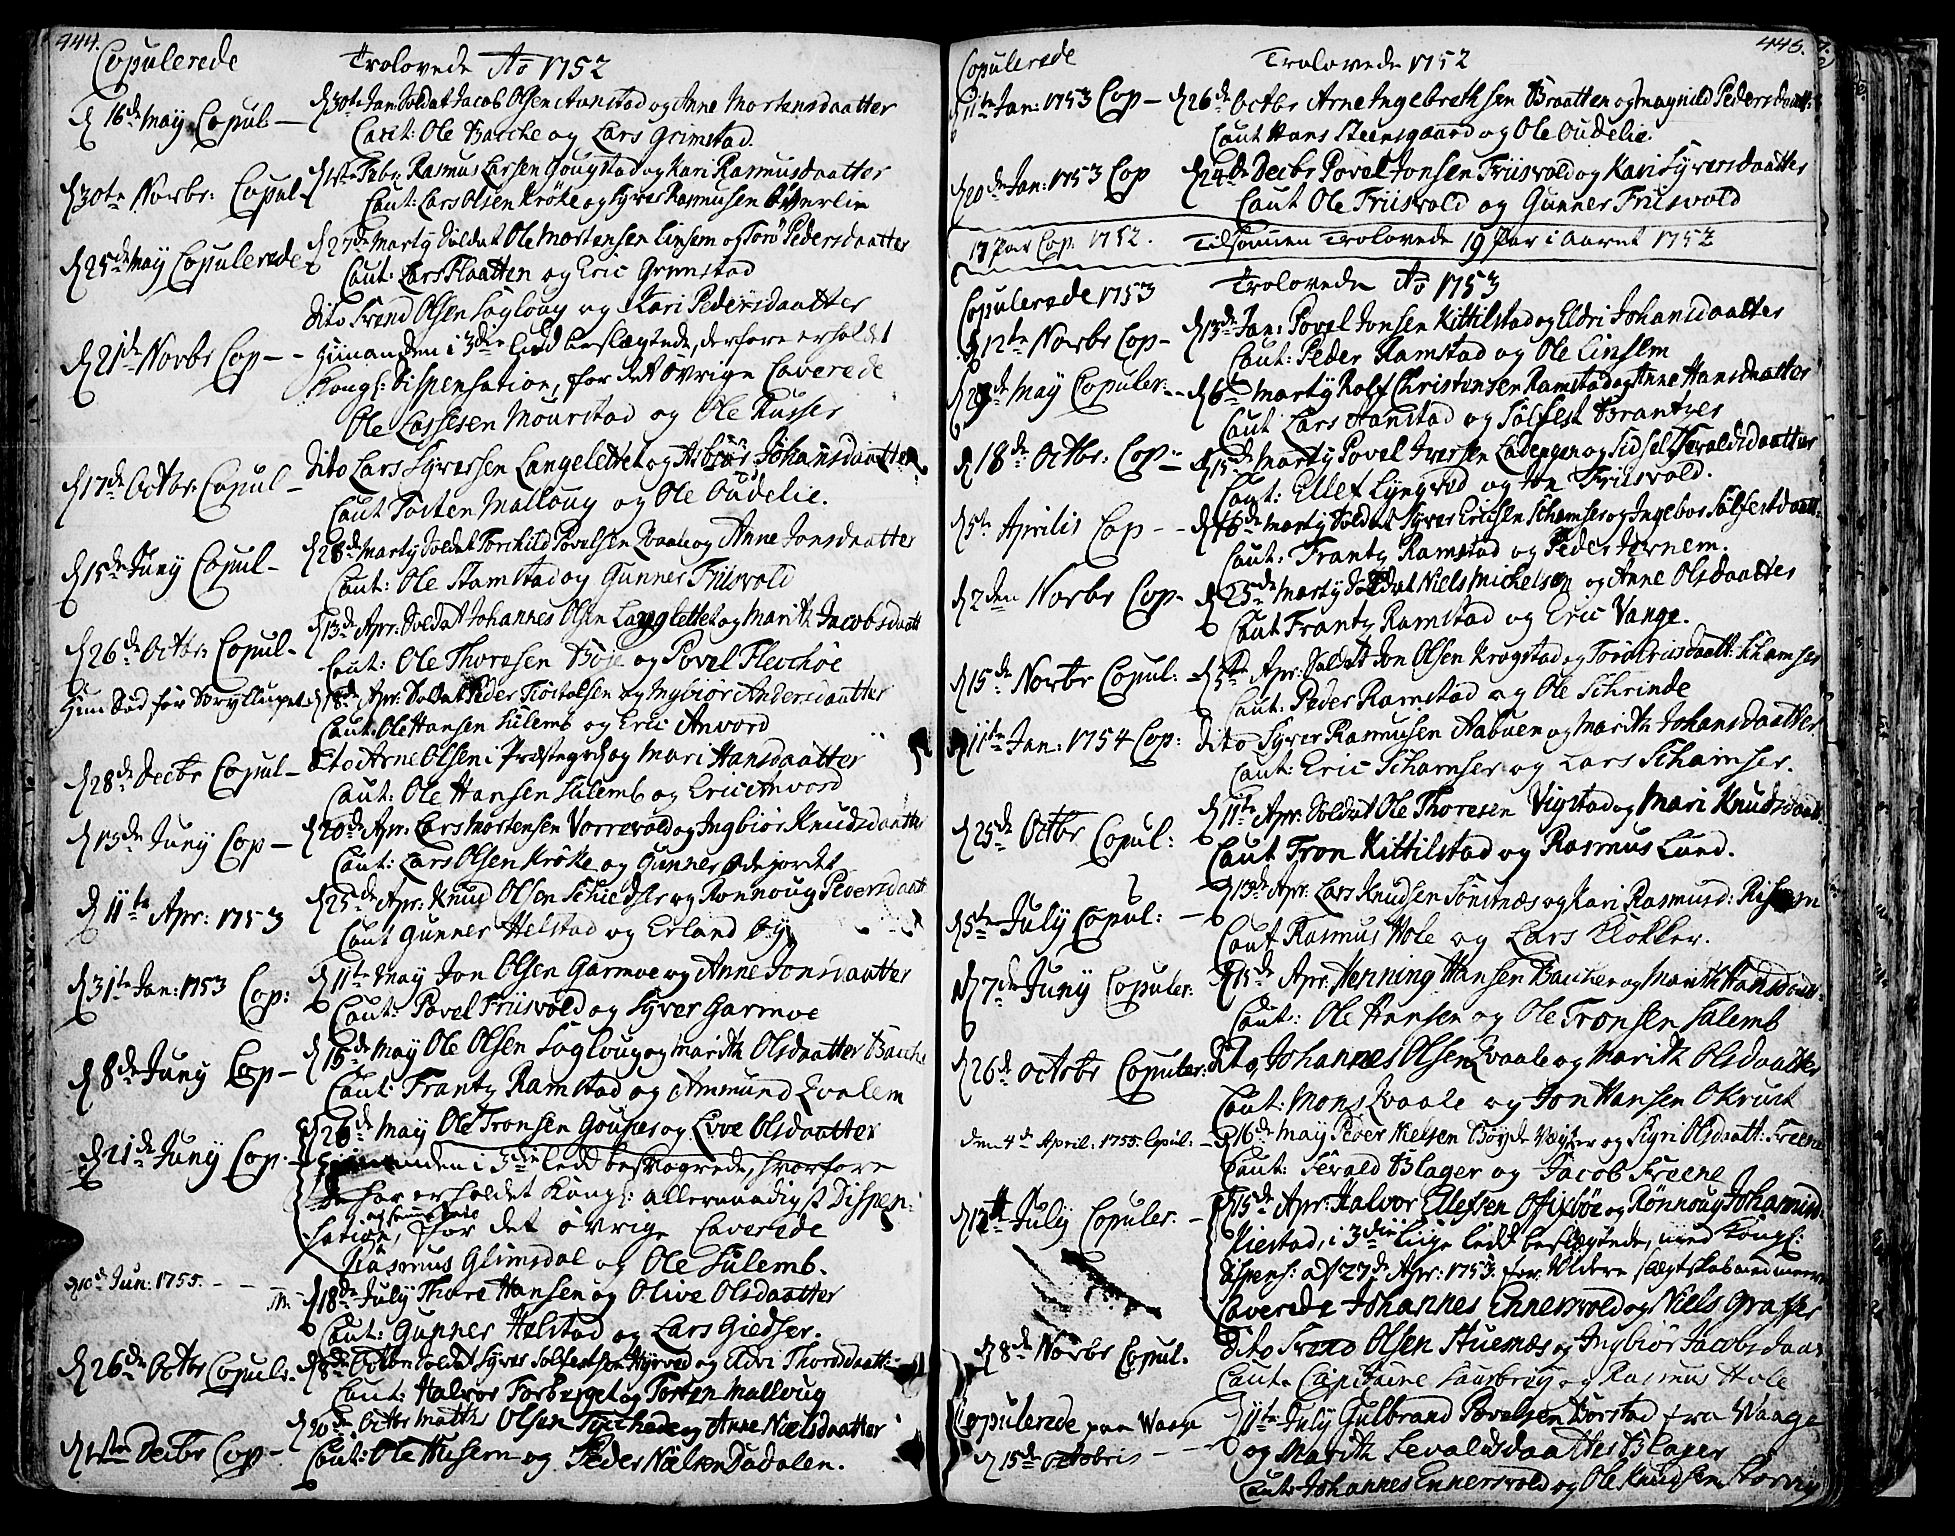 444.
Copulerede Trolovede Ao 1752
d 16de May Copul: — d 30te Jan: Soldat Jacob Olsen Aanstad og Anne Mortensdaatter
Caut: Ole Bacche og Lars Grimstad.
d 30te Novbr: Copul- d 1ste Febr: Rasmus Larsen Gougstad og Kari Rasmusdaatter
Caut: Lars Olsen Kröke og Syver Rasmusen
d 25de May Copulerede d 27de Marty Soldat Ole Mortensen Linsem og Torö Pedersdaatter
Caut: Lars Flaatten og Eric Grimstad
Dito Trond Olsen Sögloug og Kari Pedersdaatter
d 21de Novbr Cop - - hinanden i 3die Liud beslægtede, derfore erholdet
Kongl: Dispensation, for det övrige Caverede
Ole Lassesen Mourstad og Ole Russer
d 17de Octbr: Copul — Dito Lars Syversen Langelettet og Asbiör Johansdaatter
Caut Tosten Malloug og Ole Oudelie.
d 15de Juny Copul- d 28de Marty Soldat Torchild Povelsen Qvale og Anne Jonsdaatter
Caut: Ole Stamstad og Gunner Friisvold
d 26de Octbr: Copul- d 13de Apr: Soldat Johannes Olsen Langlettet og Marith Jacobsdaatt
Caut: Ole Thoresen Böje og Povel Flechöe
Hun död för Brylluppet d 18de Apr: Soldat Peder Tiöstolsen og Ingbiör Andersdaatter
Caut: Ole Hansen Sülemb og Eric Anvord
d 28de Decbr Copul — Dito Arne Olsen i Præstegrd og Mari Hansdaatter
Caut: Ole Hansen Sülemb og Eric Anvord
d 15de Juny Cop — d 20de Apr: Lars Mortensen Vorrevold og Ingbiör Knudsdaatter
Caut: Lars Olsen Kröke og Gunner Ödejordet
d 11te Apr: 1753 d 25de Apr: Knud Olsen Schiedser og Rönnoug Pedersdaatt
Caut Gunner Helstad og Erland Bye
d 31te Jan: 1753 Cop: d 11te May Jon Olsen Garmoe og Anne Jonsdaatter
Caut: Povel Friisvold og Syver Garmoe
d 8de Juny Cop — d 16de May Ole Olsen Sögloug og Marith Olsdaatter Bacche
Caut: Frantz Ramstad og Ammund Qvalem
d 21de Juny Cop. d 26de May Ole Tronsen Goupes og Eve Olsdaatter
hinanden i 3die ledd beslægtede, hvorfore
de har erholdet Kongl: allernaadigst Dispen-
sation, for det övrige Caverede
Rasmus Glimsdal og Ole Sulemb.
d 10de Jun: 1755. — d 18de July Thore Hansen og Olive Olsdaatter
Caut: Gunner Helstad og Lars Giedser.
d 26de Octbr Copul: d 8de Octbr Soldat Syver Solfestsen og Eldri Thorsdaatt:
Caut: Halvor Forberget og Tosten Malloug
d 1ste Decbr Cop — d 20de Octbr Mathis Olsen og Anne Nielsdaatter
Caut: Ole Husem og Peder Nielsen Dadalen.
445.
Copulerede Trolovede 1752
d 11te Jan: 1753 Cop — d 26de Octbr Arne Ingebrethsen Braatten og Magnild Pedersdaatt:
Caut Hans Steensgaard og Ole Oudelie
d 20de Jan: 1753 Cop d 24de Decbr Povel Jonsen Friisvold og Kari Syversdaatter
Caut Ole Friisvold og Gunner Friisvold
17 Par Cop: 1752. Tilsammen Trolovede 19 Par i Aaret 1752
Copulerede 1753 Trolovede Ao 1753
d 12te Novbr Cop — d 13de Jan: Povel Jonsen Kittilstad og Eldri Johansdaatter
Caut: Peder Ramstad og Ole Linsem
d 29de May Copuler: — d 6te Marty Rolf Christensen Ramstad og Anne Hansdaatter
Caut Lars Aanstad og Solfest Brantzer
d 18de Octbr: Cop — d 15de Marty Povel Iversen Ladengen og Sidsel Sevaldsdaatter
Caut: Ellef Lyngved og Jon Friisvold.
d 5te Aprilis Cop - - d 16de Marty Soldat Syver Ericsen Schamser og Ingebor Solfestdaatt:
Caut: Frantz Ramstad og Peder Jernem.
d 2den Novbr Cop — d 25de Marty Soldat Niels Michelsen og Anne Olsdaatter
Caut Frantz Ramstad og Eric Vange.
d 15de Novbr Copul: — d 5te Apr: Soldat Jon Olsen Krogstad og Torö Ericsdaatt: Schamser
Caut: Peder Ramstad og Ole Schrinde
d 11te Jan: 1754 Cop: Dito Syver Rasmusen Aabuen og Marith Johansdaatter
Caut: Eric Schamser og Lars Schamser.
d 25de Octbr Copul: d 11te Apr: Soldat Ole Thoresen Vigstad og Mari Knudsdaatt.
Caut Tron Kittilstad og Rasmus Lund.
d 5te July Copul: — d 13de Apr: Lars Knudsen Sönstnæs og Kari Rasmusd:
Caut Rasmus Hole og Lars Klokker.
d 7de Juny Copuler: d 15de Apr: Henning Hansen Bacher og Marith Hansdaatt:
Caut: Ole Hansen og Ole Tronsen Sulemb
d 26de Octobr Copuler: Dito, Johannes Olsen Qvaale og Marith Olsdaatter
Caut: Mons Qvaale og Jon Hansen Okrust
den 4de April: 1755. Copul. — d 16de May Peder Nielsen og Sigri Olsdaatt: Freene
Caut: Sevald Blager og Jacob Freene
d 12te July Copuler. — d 15de Apr: Halvor Ellefsen Ofigsböe og Rönnoug Johannisd:
Niestad, i 3die Liige ledd beslægtede, med Kongl:
Dispens: af 27de Apr: 1753. for Videre slægtskab med meere
Caverede Johannes Ennersvold og Niels Graffer
d 8de Novbr Copul. Dito Trond Olsen Stuenæs og Ingbiör Jacobsdaat
Caut: Capitaine og Rasmus Hole
Copulerede paa Waage d 11te July Gulbrand Povelsen Borstad fra Waage
d 15de Octobris — og Marith Sevaldsdaatter Blager
Caut: Johannes Ennersvold og Ole Knudsen